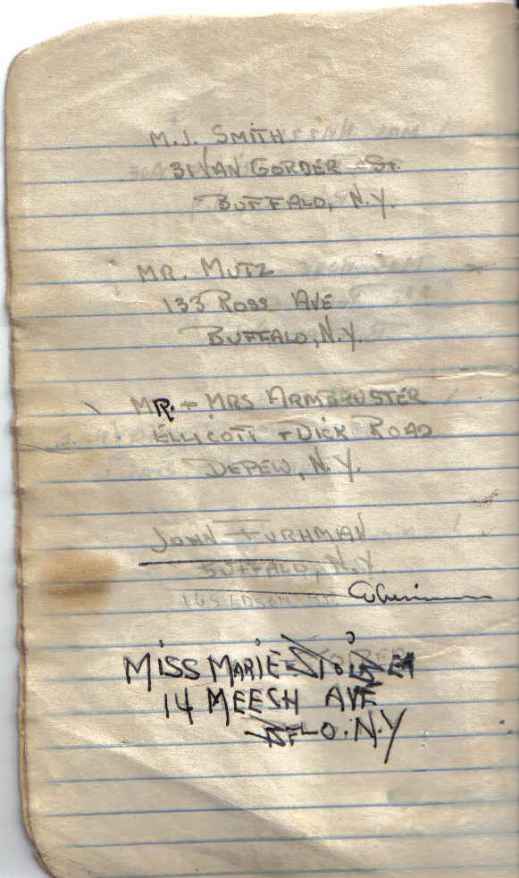 M.J. SMITH
31 VAN GORDER St.
BUFFALO, N.Y.
MR. MUTZ
133 ROSS AVE
BUFFALO, N.Y.
MR. + MRS ARMBRUSTER
ELLICOTT + DICK ROAD
DEPEW, N.Y.
JOHN FURHMAN
BUFFALO, N.Y.
145
MISS MARIE
14 MEESH AVE
BFLO. N.Y